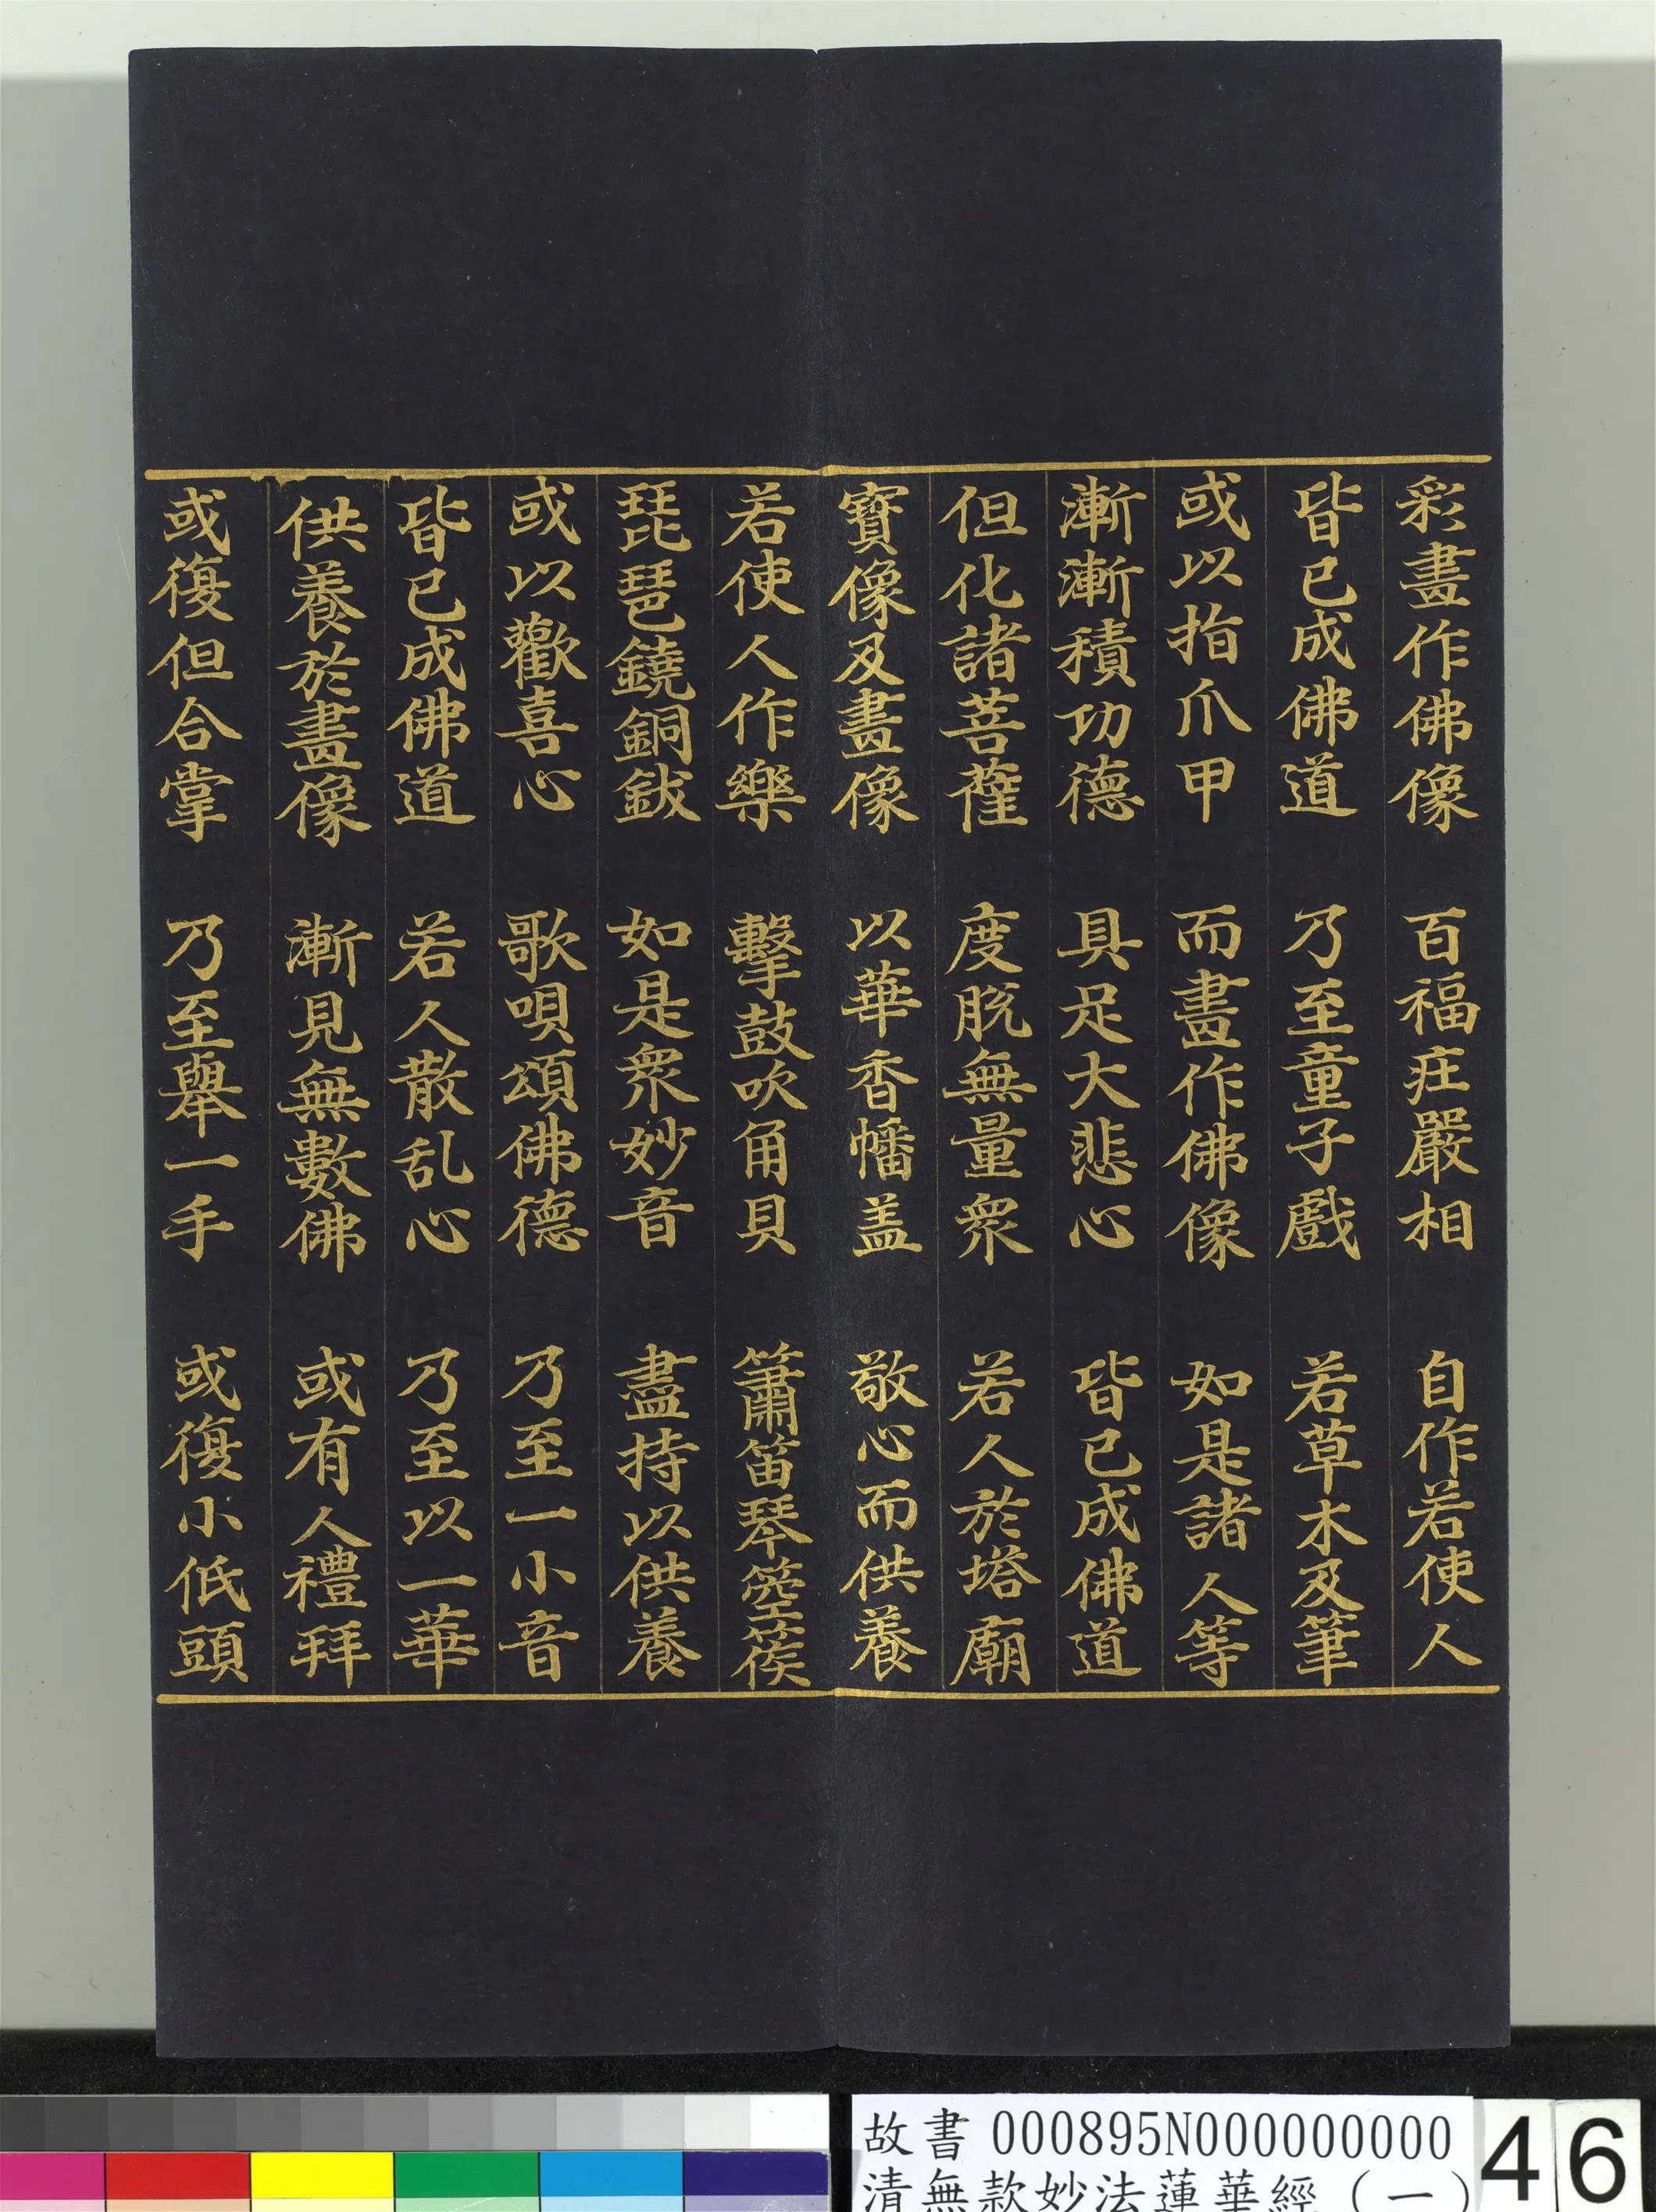 彩畫作佛像　百福庄嚴相　自作若使人
皆已成佛道　乃至童子戲　若草木及筆
或以指爪甲　而畫作佛像　如是諸人等
漸漸積功德　具足大悲心　皆已成佛道
但化諸菩薩　度脫無量衆　若人於塔廟
寶像及畫像　以華香幡盖　敬心而供養
若使人作樂　擊鼓吹角貝　簫笛琴箜篌
琵琶鐃銅鈸　如是衆妙音　盡持以供養
或以歡喜心　歌唄頌佛德　乃至一小音
皆已成佛道　若人散乱心　乃至以一華
供養於畫像　漸見無數佛　或有人禮拜
或復但合掌　乃至舉一手　或復小低頭
故書 000895N000000000
清無款妙法蓮華經（一）
46